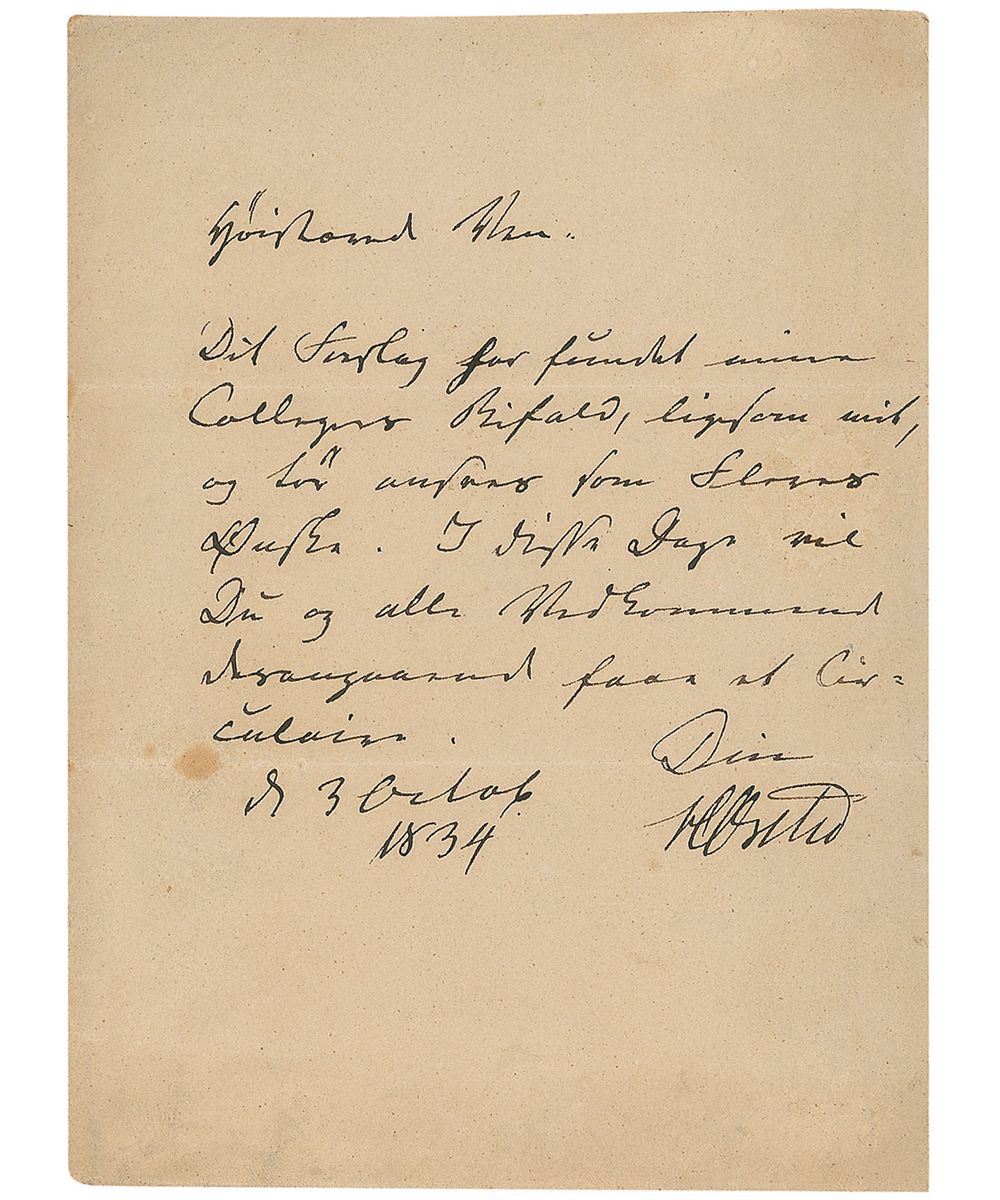 Høistærede Ven.
Dit Forslag har fundet mine
Collegers Bifald, ligesom mit,
og tör ansees som Fleres
Ønske. I disse Dage vil
Du og alle Vedkommende
desangaaende faae et Cir=
culaire.
Din
d 3 Octob.
1834
HCØrsted